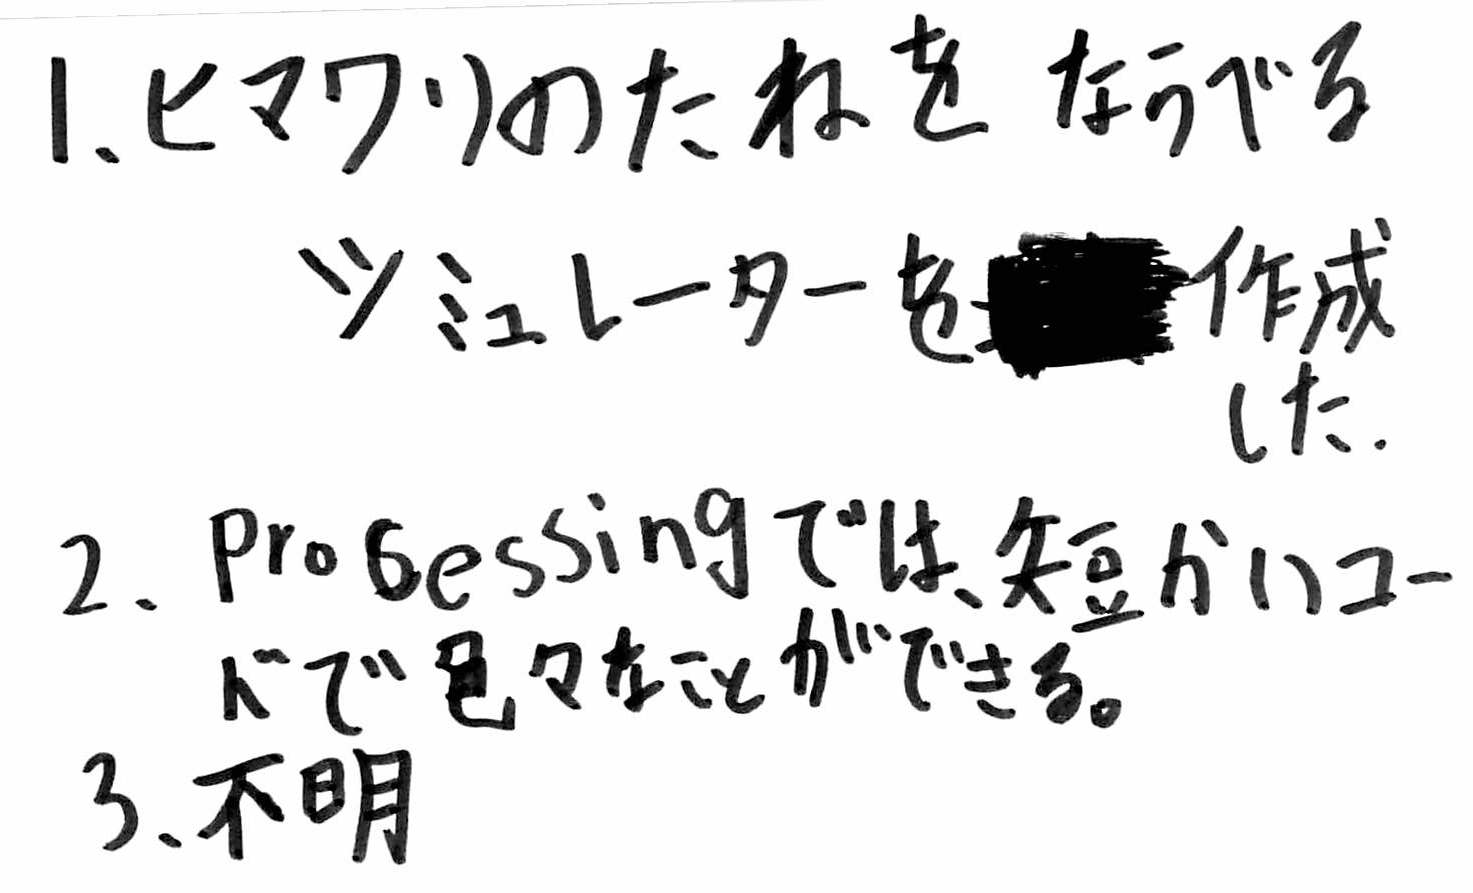 1、ヒマワリのたねをならべる
ツミュレーターを作成
した.
2、Processingでは、短かいコー
ドで色々なことができる。
3、不明